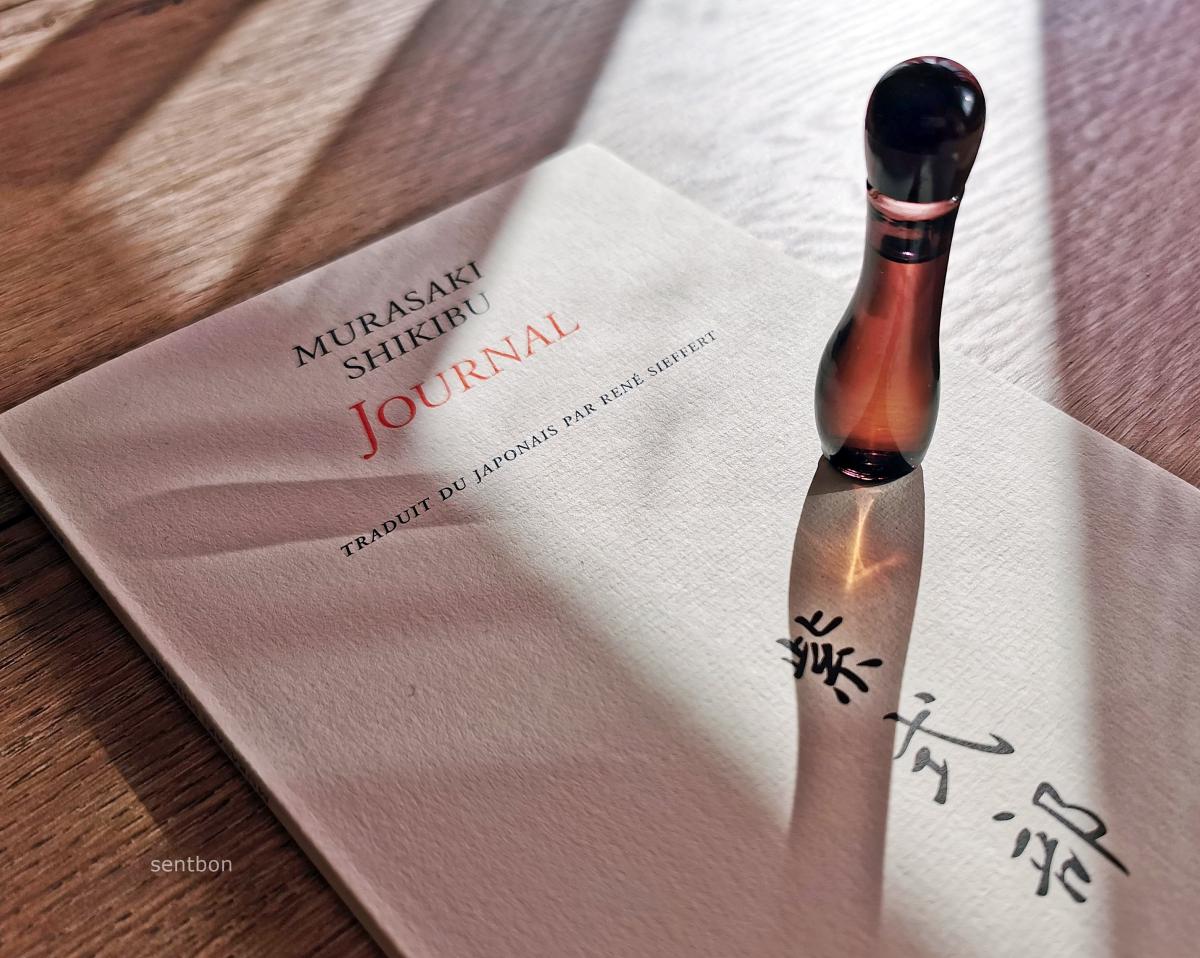 MURASAKI
SHIKIBU
JOURNAL
TRADUIT DU JAPONAIS PAR RENÉ SIEFFERT
紫式部
sentbon